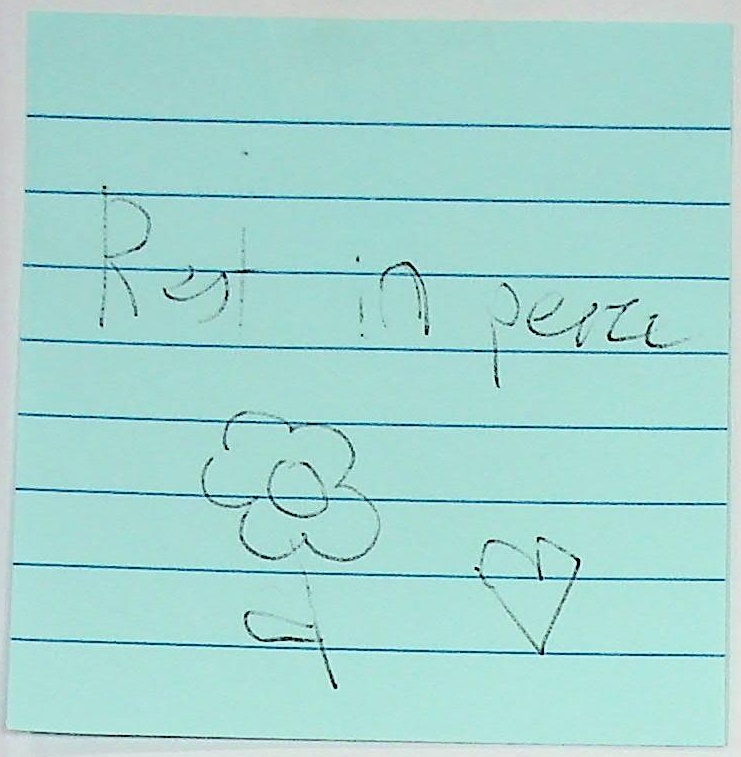 Rest in peace